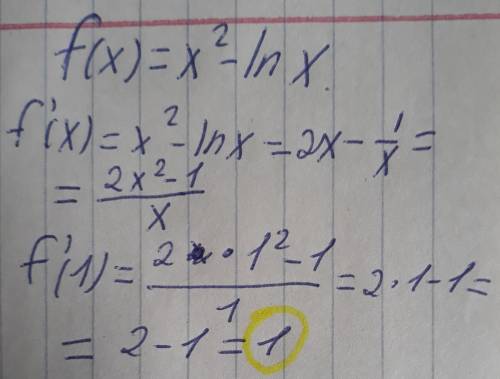 f(x) = x² - ln x.
f'(x) = x² - ln x = 2x - 1/x =
= (2x² - 1)/x
f'(1) = (2 · 1² - 1)/1 = 2 · 1 - 1 =
= 2 - 1 = 1